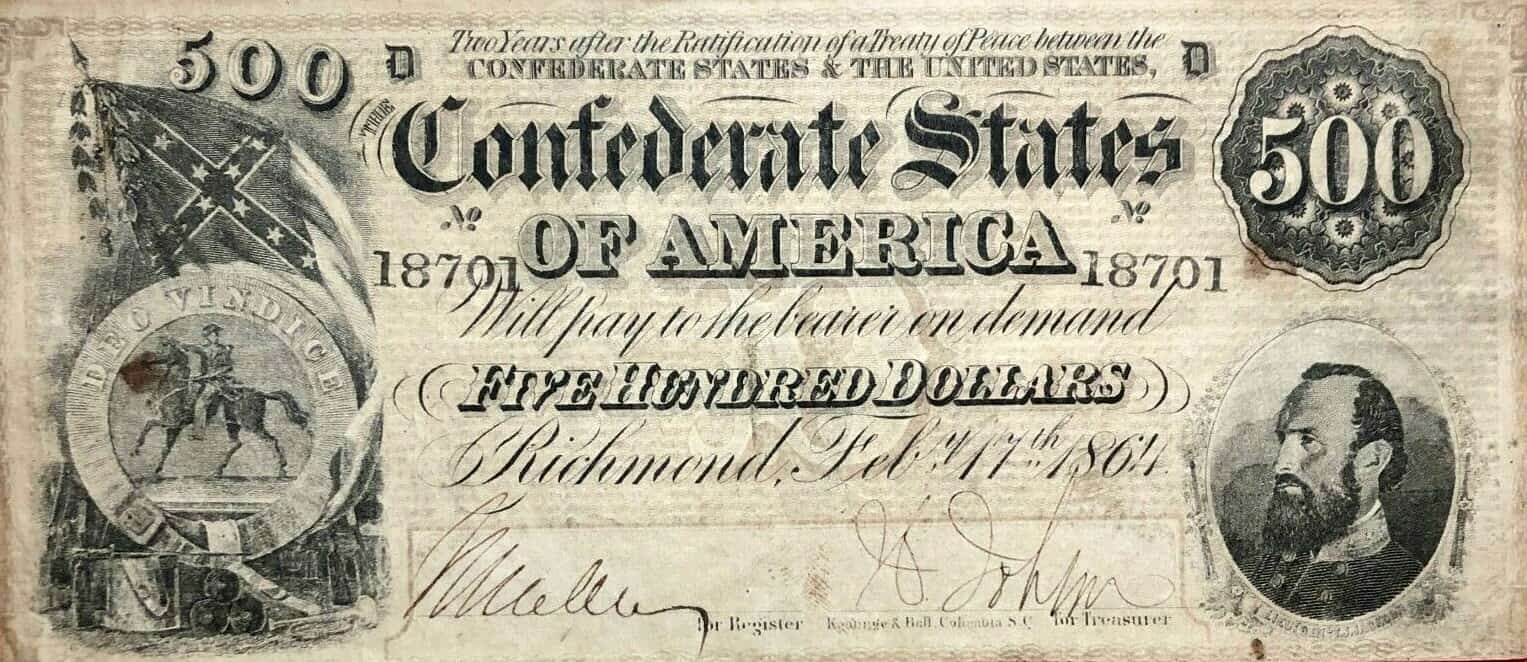 500 D Two Years after the Ratification of a Treaty of Peace between the D
CONFEDERATE STATES & THE UNITED STATES,
THE Confederate States
500
Nº OF AMERICA Nº
18701 18701
DEO VINDICE
Will pay to the bearer on demand
FIVE HUNDRED DOLLARS
Richmond, Feb.y 17th 1864.
for Register Keatinge & Ball, Columbia S.C. for Treasurer